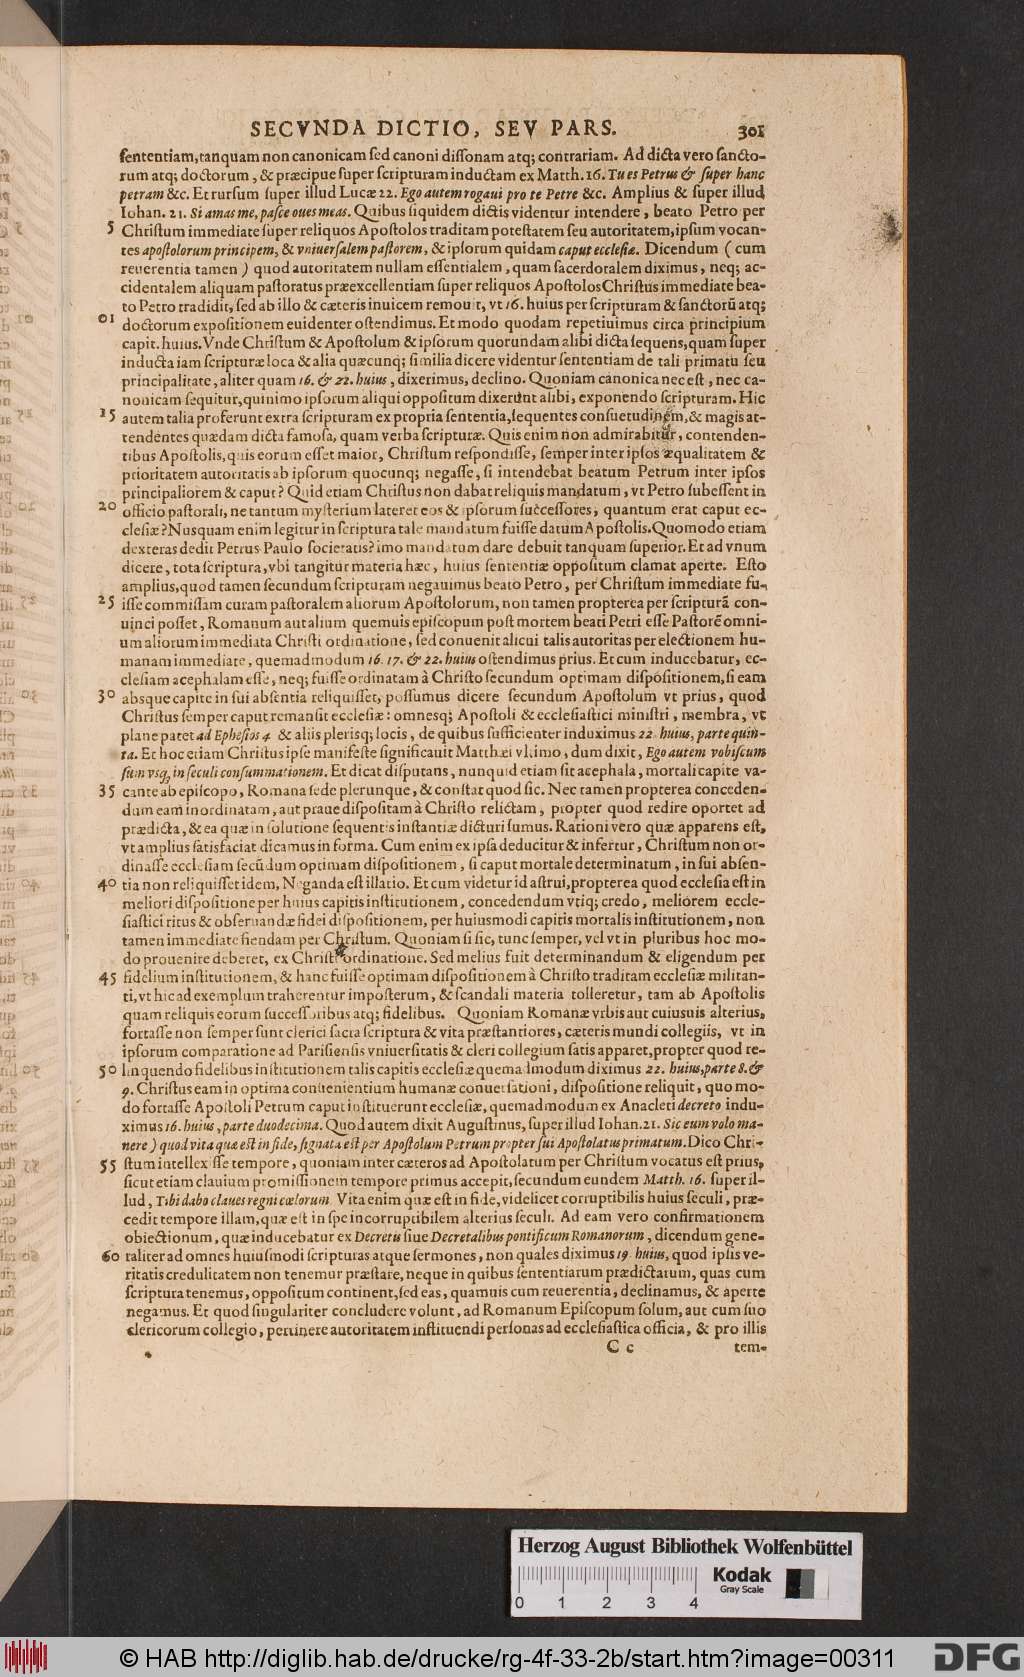 SECVNDA DICTIO, SEV PARS. 301
sententiam, tanquam non canonicam sed canoni dissonam atq; contrariam. Ad dicta vero sancto-
rum atq; doctorum, & præcipue super scripturam inductam ex Matth. 16. Tu es Petrus & super hanc
petram &c. Et rursum super illud Lucæ 22. Ego autem rogaui pro te Petre &c. Amplius & super illud
Iohan. 21. Si amas me, pasce oues meas. Quibus siquidem dictis videntur intendere, beato Petro per
5 Christum immediate super reliquos Apostolos traditam potestatem seu autoritatem, ipsum vocan-
tes apostolorum principem, & vniuersalem pastorem, & ipsorum quidam caput ecclesiæ. Dicendum (cum
reuerentia tamen) quod autoritatem nullam essentialem, quam sacerdotalem diximus, neq; ac-
cidentalem aliquam pastoratus præexcellentiam super reliquos Apostolos Christus immediate bea-
to Petro tradidit, sed ab illo & cæteris inuicem remouit, vt 16. huius per scripturam & sanctorū atq;
01 doctorum expositionem euidenter ostendimus. Et modo quodam repetiuimus circa principium
capit. huius. Vnde Christum & Apostolum & ipsorum quorundam alibi dicta sequens, quam super
inducta iam scripturæ loca & alia quæcunq; similia dicere videntur sententiam de tali primatu seu
principalitate, aliter quam 16. & 22. huius, dixerimus, declino. Quoniam canonica nec est, nec ca-
nonicam sequitur, quinimo ipsorum aliqui oppositum dixerunt alibi, exponendo scripturam. Hic
15 autem talia proferunt extra scripturam ex propria sententia, sequentes consuetudinem, & magis at-
tendentes quædam dicta famosa, quam verba scripturæ. Quis enim non admirabitur, contenden-
tibus Apostolis, quis eorum esset maior, Christum respondisse, semper inter ipsos æqualitatem &
prioritatem autoritatis ab ipsorum quocunq; negasse, si intendebat beatum Petrum inter ipsos
principaliorem & caput? Quid etiam Christus non dabat reliquis mandatum, vt Petro subessent in
20 officio pastorali, ne tantum mysterium lateret eos & ipsorum successores, quantum erat caput ec-
clesiæ? Nusquam enim legitur in scriptura tale mandatum fuisse datum Apostolis. Quomodo etiam
dexteras dedit Petrus Paulo societatis? imo mandatum dare debuit tanquam superior. Et ad vnum
dicere, tota scriptura, vbi tangitur materia hæc, huius sententiæ oppositum clamat aperte. Esto
amplius, quod tamen secundum scripturam negauimus beato Petro, per Christum immediate fu-
25 isse commissam curam pastoralem aliorum Apostolorum, non tamen propterea per scripturā con-
uinci posset, Romanum aut alium quemuis episcopum post mortem beati Petri esse Pastorē omni-
um aliorum immediata Christi ordinatione, sed conuenit alicui talis autoritas per electionem hu-
manam immediate, quemadmodum 16. 17. & 22. huius ostendimus prius. Et cum inducebatur, ec-
clesiam acephalam esse, neq; fuisse ordinatam à Christo secundum optimam dispositionem, si eam
30 absque capite in sui absentia reliquisset, possumus dicere secundum Apostolum vt prius, quod
Christus semper caput remansit ecclesiæ: omnesq; Apostoli & ecclesiastici ministri, membra, vt
plane patet ad Ephesios 4 & aliis plerisq; locis, de quibus sufficienter induximus 22 huius, parte quin-
ta. Et hoc etiam Christus ipse manifeste significauit Matthæi vltimo, dum dixit, Ego autem vobiscum
sum vsq; in seculi consummationem. Et dicat disputans, nunquid etiam sit acephala, mortali capite va-
35 cante ab episcopo, Romana sede plerunque, & constat quod sic. Nec tamen propterea conceden-
dum eam inordinatam, aut praue dispositam à Christo relictam, propter quod redire oportet ad
prædicta, & ea quæ in solutione sequentis instantiæ dicturi sumus. Rationi vero quæ apparens est,
vt amplius satisfaciat dicamus in forma. Cum enim ex ipsa deducitur & infertur, Christum non or-
dinasse ecclesiam secūdum optimam dispositionem, si caput mortale determinatum, in sui absen-
40 tia non reliquisset idem, Neganda est illatio. Et cum videtur id astrui, propterea quod ecclesia est in
meliori dispositione per huius capitis institutionem, concedendum vtiq; credo, meliorem eccle-
siastici ritus & obseruandæ fidei dispositionem, per huiusmodi capitis mortalis institutionem, non
tamen immediate fiendam per Christum. Quoniam si sic, tunc semper, vel vt in pluribus hoc mo-
do prouenire deberet, ex Christi ordinatione. Sed melius fuit determinandum & eligendum per
45 fidelium institutionem, & hanc fuisse optimam dispositionem à Christo traditam ecclesiæ militan-
ti, vt hic ad exemplum traherentur imposterum, & scandali materia tolleretur, tam ab Apostolis
quam reliquis eorum successoribus atq; fidelibus. Quoniam Romanæ vrbis aut cuiusuis alterius,
fortasse non semper sunt clerici sacra scriptura & vita præstantiores, cæteris mundi collegiis, vt in
ipsorum comparatione ad Parisiensis vniuersitatis & cleri collegium satis apparet, propter quod re-
50 linquendo fidelibus institutionem talis capitis ecclesiæ quemadmodum diximus 22. huius, parte 8. &
9. Christus eam in optima conuenientium humanæ conuersationi, dispositione reliquit, quo mo-
do fortasse Apostoli Petrum caput instituerunt ecclesiæ, quemadmodum ex Anacleti decreto indu-
ximus 16. huius, parte duodecima. Quod autem dixit Augustinus, super illud Iohan. 21. Sic eum volo ma-
nere) quod vita quæ est in fide, signata est per Apostolum Petrum propter sui Apostolatus primatum. Dico Chri-
55 stum intellexisse tempore, quoniam inter cæteros ad Apostolatum per Christum vocatus est prius,
sicut etiam clauium promissionem tempore primus accepit, secundum eundem Matth. 16. super il-
lud, Tibi dabo claues regni cœlorum. Vita enim quæ est in fide, videlicet corruptibilis huius seculi, præ-
cedit tempore illam, quæ est in spe incorruptibilem alterius seculi. Ad eam vero confirmationem
obiectionum, quæ inducebatur ex Decretis siue Decretalibus pontificum Romanorum, dicendum gene-
60 raliter ad omnes huiusmodi scripturas atque sermones, non quales diximus 19. huius, quod ipsis ve-
ritatis credulitatem non tenemur præstare, neque in quibus sententiarum prædictarum, quas cum
scriptura tenemus, oppositum continent, sed eas, quamuis cum reuerentia, declinamus, & aperte
negamus. Et quod singulariter concludere volunt, ad Romanum Episcopum solum, aut cum suo
clericorum collegio, pertinere autoritatem instituendi personas ad ecclesiastica officia, & pro illis
C c tem-
Herzog August Bibliothek Wolfenbüttel
Kodak
Gray Scale
0 1 2 3 4
© HAB http://diglib.hab.de/drucke/rg-4f-33-2b/start.htm?image=00311
DFG